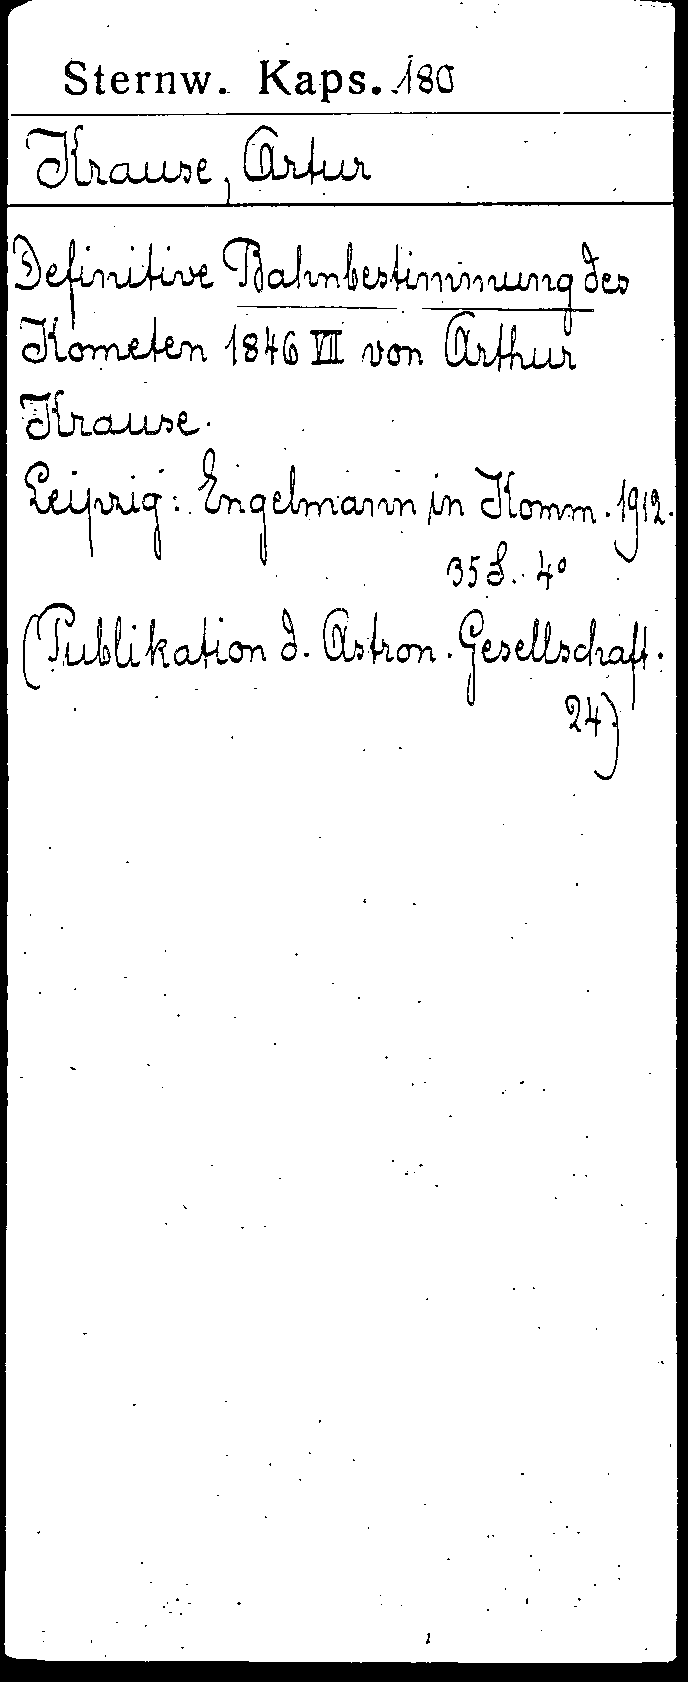 Sternw. Kaps. 180
Krause, Artur
Definitive Bahnbestimmung des
Kometen 1846 VII von Arthur
Krause.
Leipzig: Engelmann in Komm. 1912.
35 S. 4°
(Publikation d. Astron. Gesellschaft.
24)